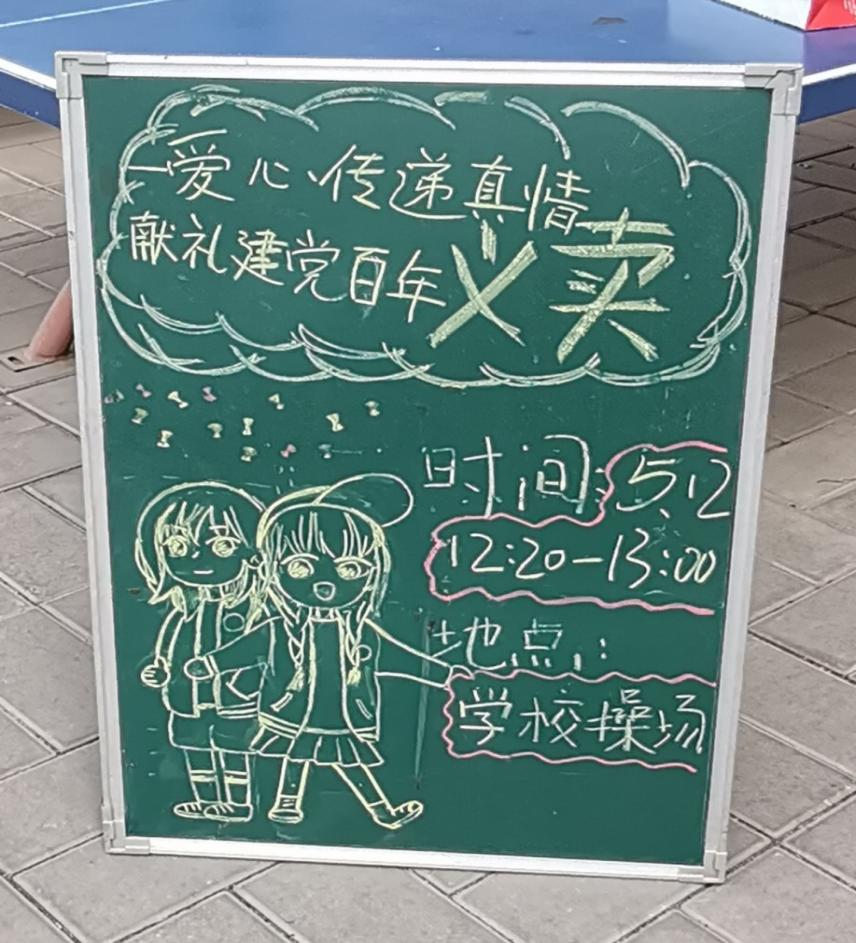 爱心传递真情
献礼建党百年义卖
时间:5.12
12:20-13:00
地点:
学校操场